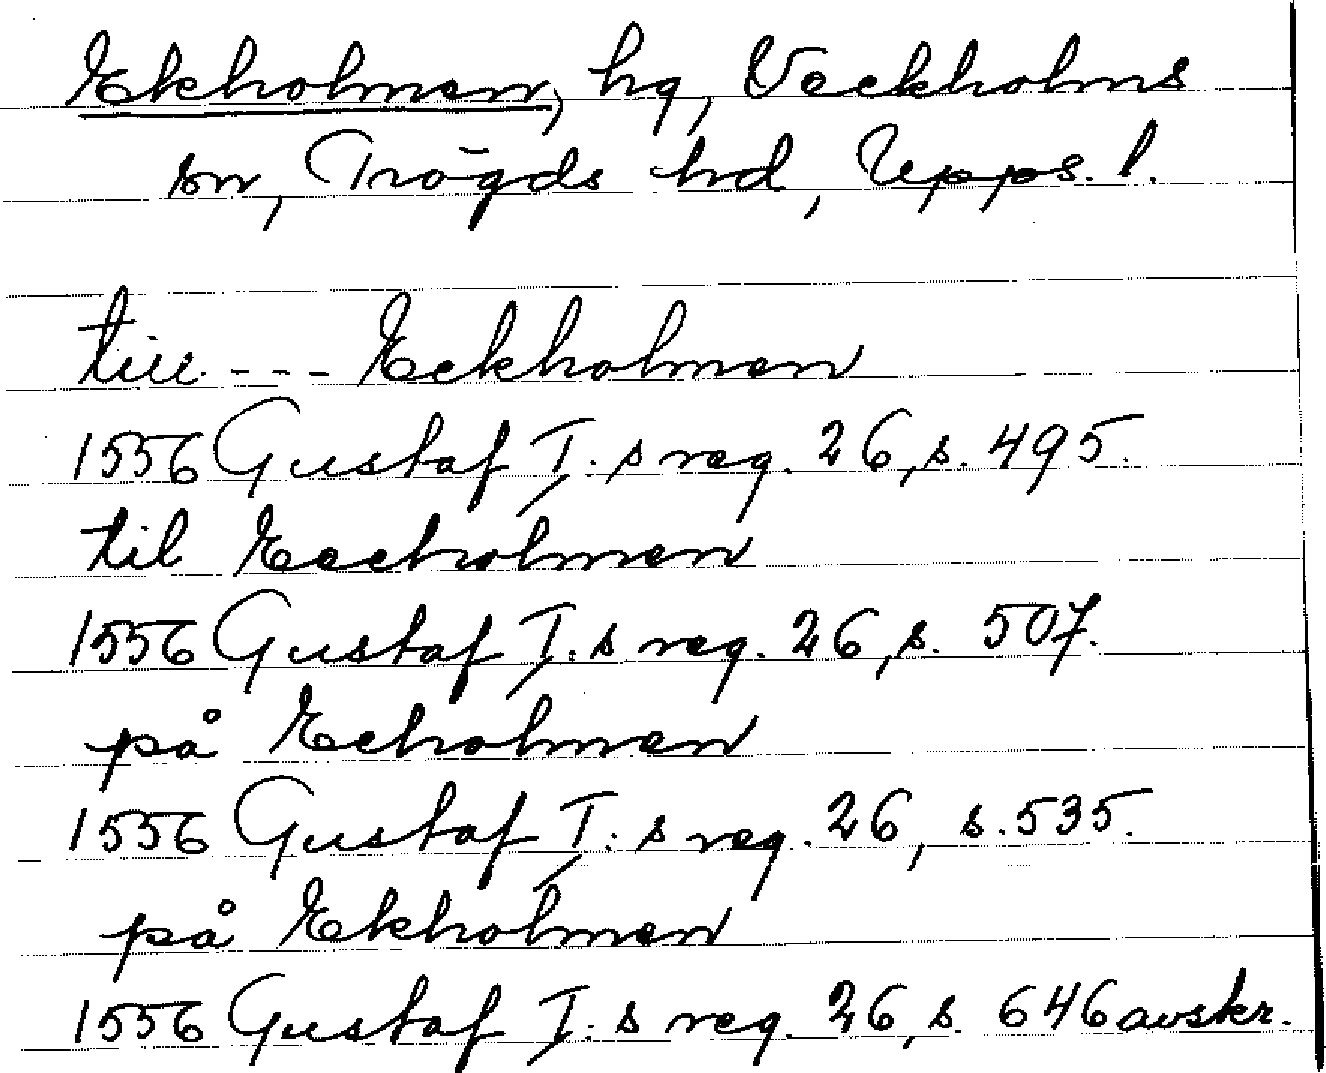 Ekholmen, hg, Veckholms
sn, Trögds hd, Upps. l.
till --- Eckholmen
1556 Gustaf I:s reg. 26, s. 495.
til Eecholmen
1556 Gustaf I:s reg. 26, s. 507.
på Echolmen
1556 Gustaf I:s reg. 26, s. 535.
på Ekholmen
1556 Gustaf I:s reg. 26, s. 646 avskr.